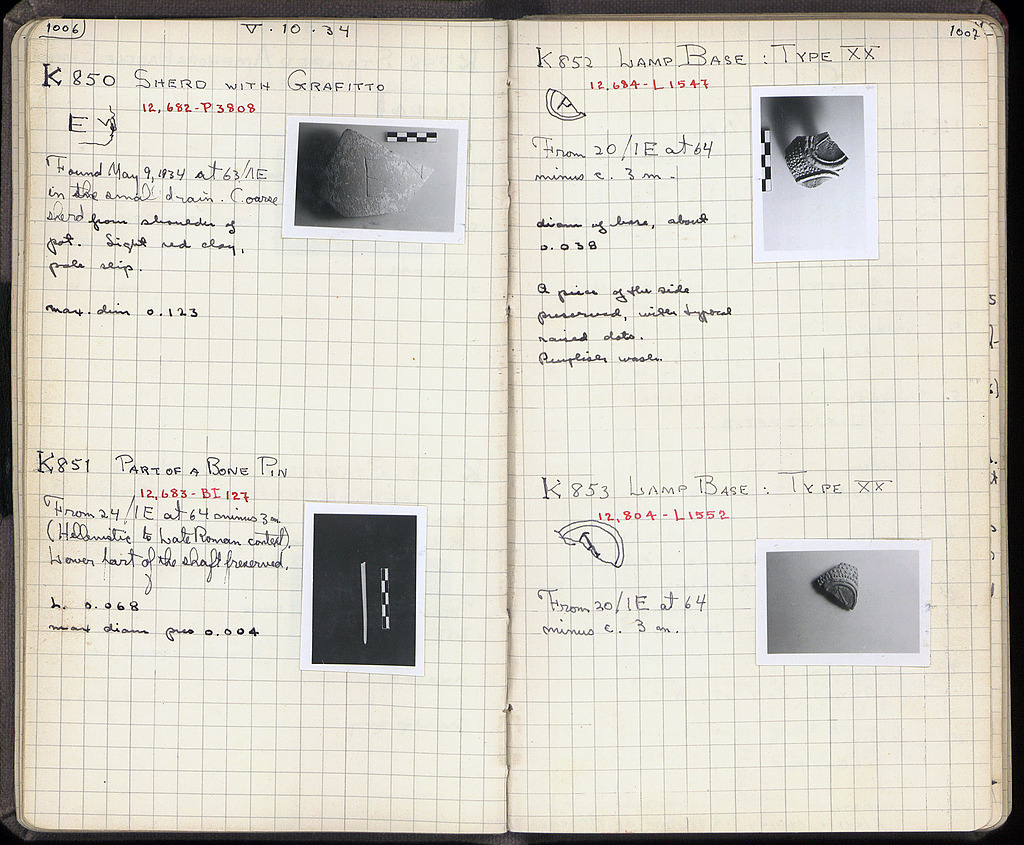 1006
V · 10 · 34
K 850 SHERD WITH GRAFITTO
12,682 - P 3808
E
Found May 9, 1934 at 63/ΛE
in the small drain. Coarse
sherd from shoulder of
pot. Light red clay,
pale slip.
max. dim 0.123
K 851 PART OF A BONE PIN
12,683 - BI 127
From 24/ΙΕ at 64 minus 3 m.
(Hellenistic to Late Roman context).
Lower part of the shaft preserved.
L. 0.068
max diam pres 0.004
K 852 LAMP BASE : TYPE XX
12,684 - L 1547
From 20/ΙΕ at 64
minus c. 3 m.
diam of base, about
0.038
A piece of the side
preserved, with typical
raised dots.
Purplish wash.
K 853 LAMP BASE : TYPE XX
12,804 - L 1552
From 20/ΙΕ at 64
minus c. 3 m.